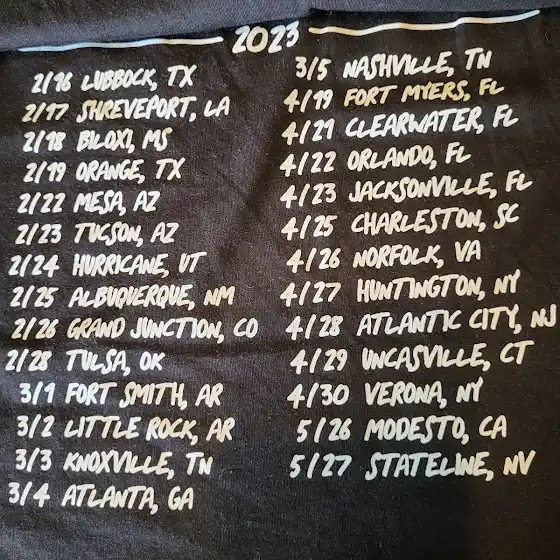 2023
2/16 LUBBOCK, TX
2/17 SHREVEPORT, LA
2/18 BILOXI, MS
2/19 ORANGE, TX
2/22 MESA, AZ
2/23 TUCSON, AZ
2/24 HURRICANE, UT
2/25 ALBUQUERQUE, NM
2/26 GRAND JUNCTION, CO
2/28 TULSA, OK
3/1 FORT SMITH, AR
3/2 LITTLE ROCK, AR
3/3 KNOXVILLE, TN
3/4 ATLANTA, GA
3/5 NASHVILLE, TN
4/19 FORT MYERS, FL
4/21 CLEARWATER, FL
4/22 ORLANDO, FL
4/23 JACKSONVILLE, FL
4/25 CHARLESTON, SC
4/26 NORFOLK, VA
4/27 HUNTINGTON, NY
4/28 ATLANTIC CITY, NJ
4/29 UNCASVILLE, CT
4/30 VERONA, NY
5/26 MODESTO, CA
5/27 STATELINE, NV